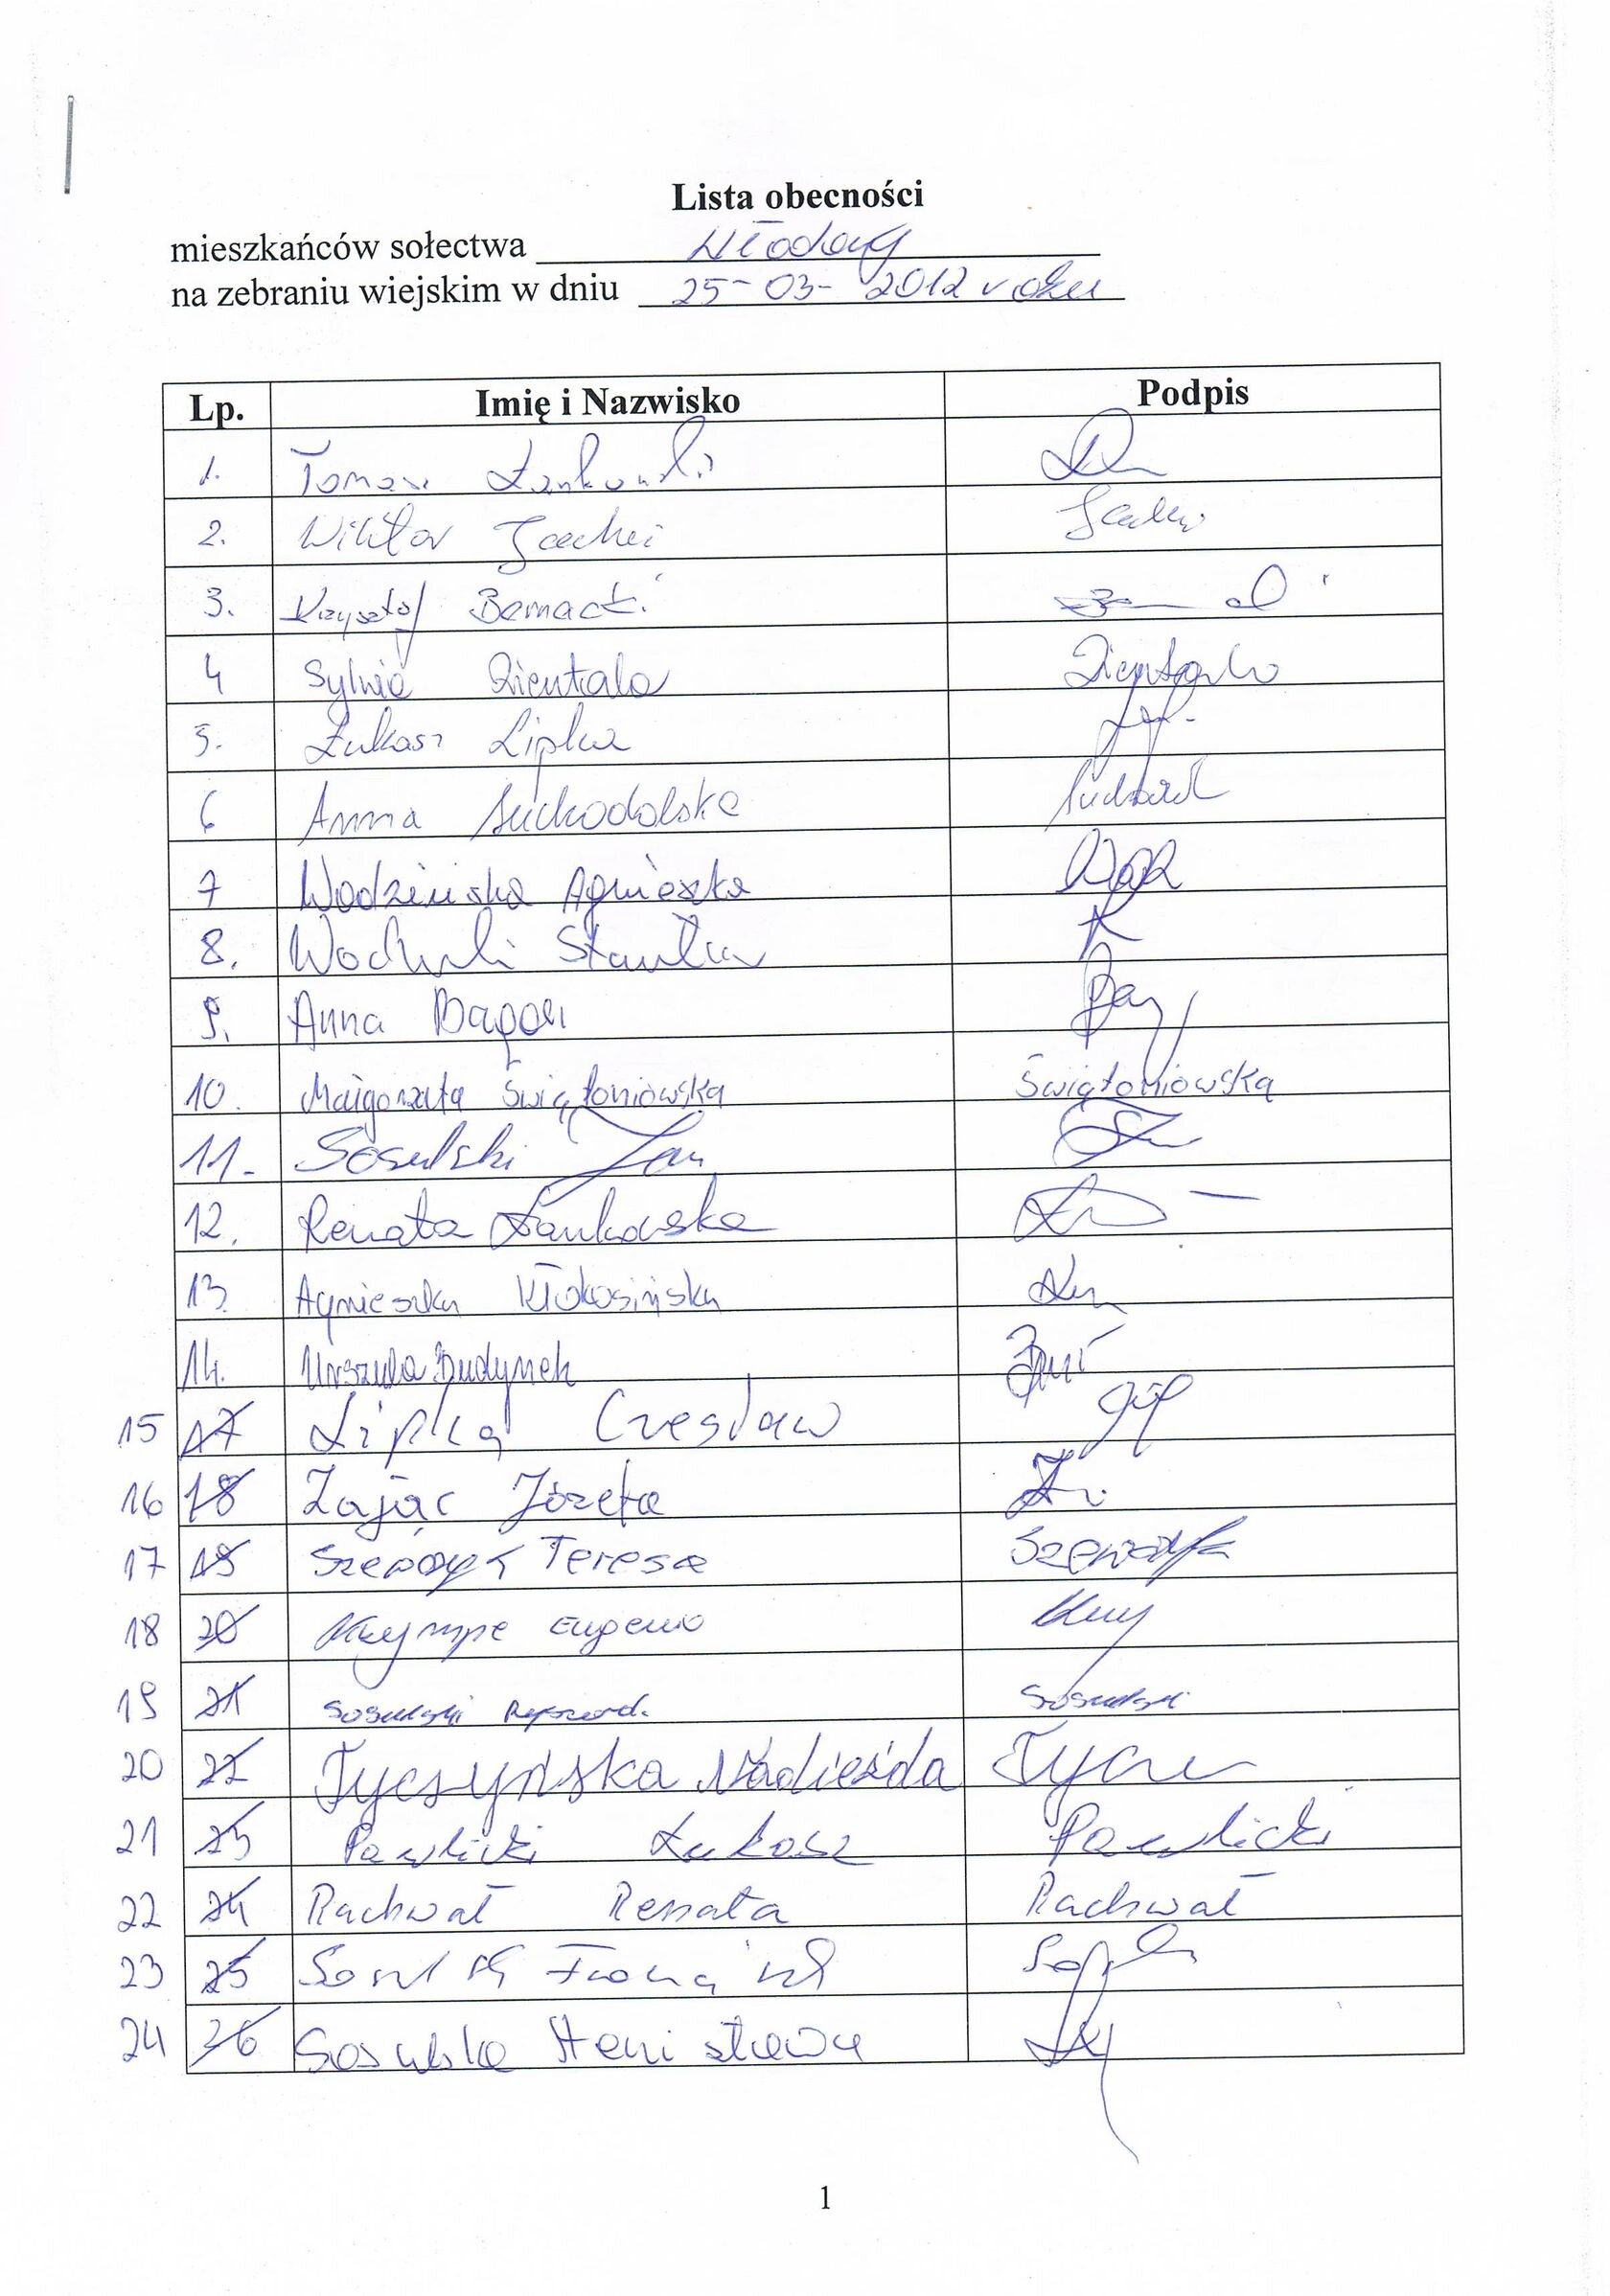 Lista obecności
mieszkańców sołectwa Włodary
na zebraniu wiejskim w dniu 25-03-2012 roku
Lp. Imię i Nazwisko Podpis
1. Tomasz Łankowski
2. Wiktor
3. Krzysztof Bernacki
4 Sylwia Zientala
5. Łukasz Lipka
6 Anna Suchodolska
7 Wodzińska Agnieszka
8.
9. Anna
10. Małgorzata Świątoniowska Świątoniowska
11. Sosulski Jan
12. Renata Łankowska
13. Agnieszka Kłokosińska
14. Urszula Budynek
15 17 Lipka Czesław
16 18 Zając Józefa
17 19 Szewczyk Teresa Szewczyk
18 20
19 21 Sosulski Ryszard. Sosulski
20 22 Tyczyńska Nadieżda
21 23 Pawlicki Łukasz Pawlicki
22 24 Rachwał Renata Rachwał
23 25
24 26 Sosulska Stanisława
1